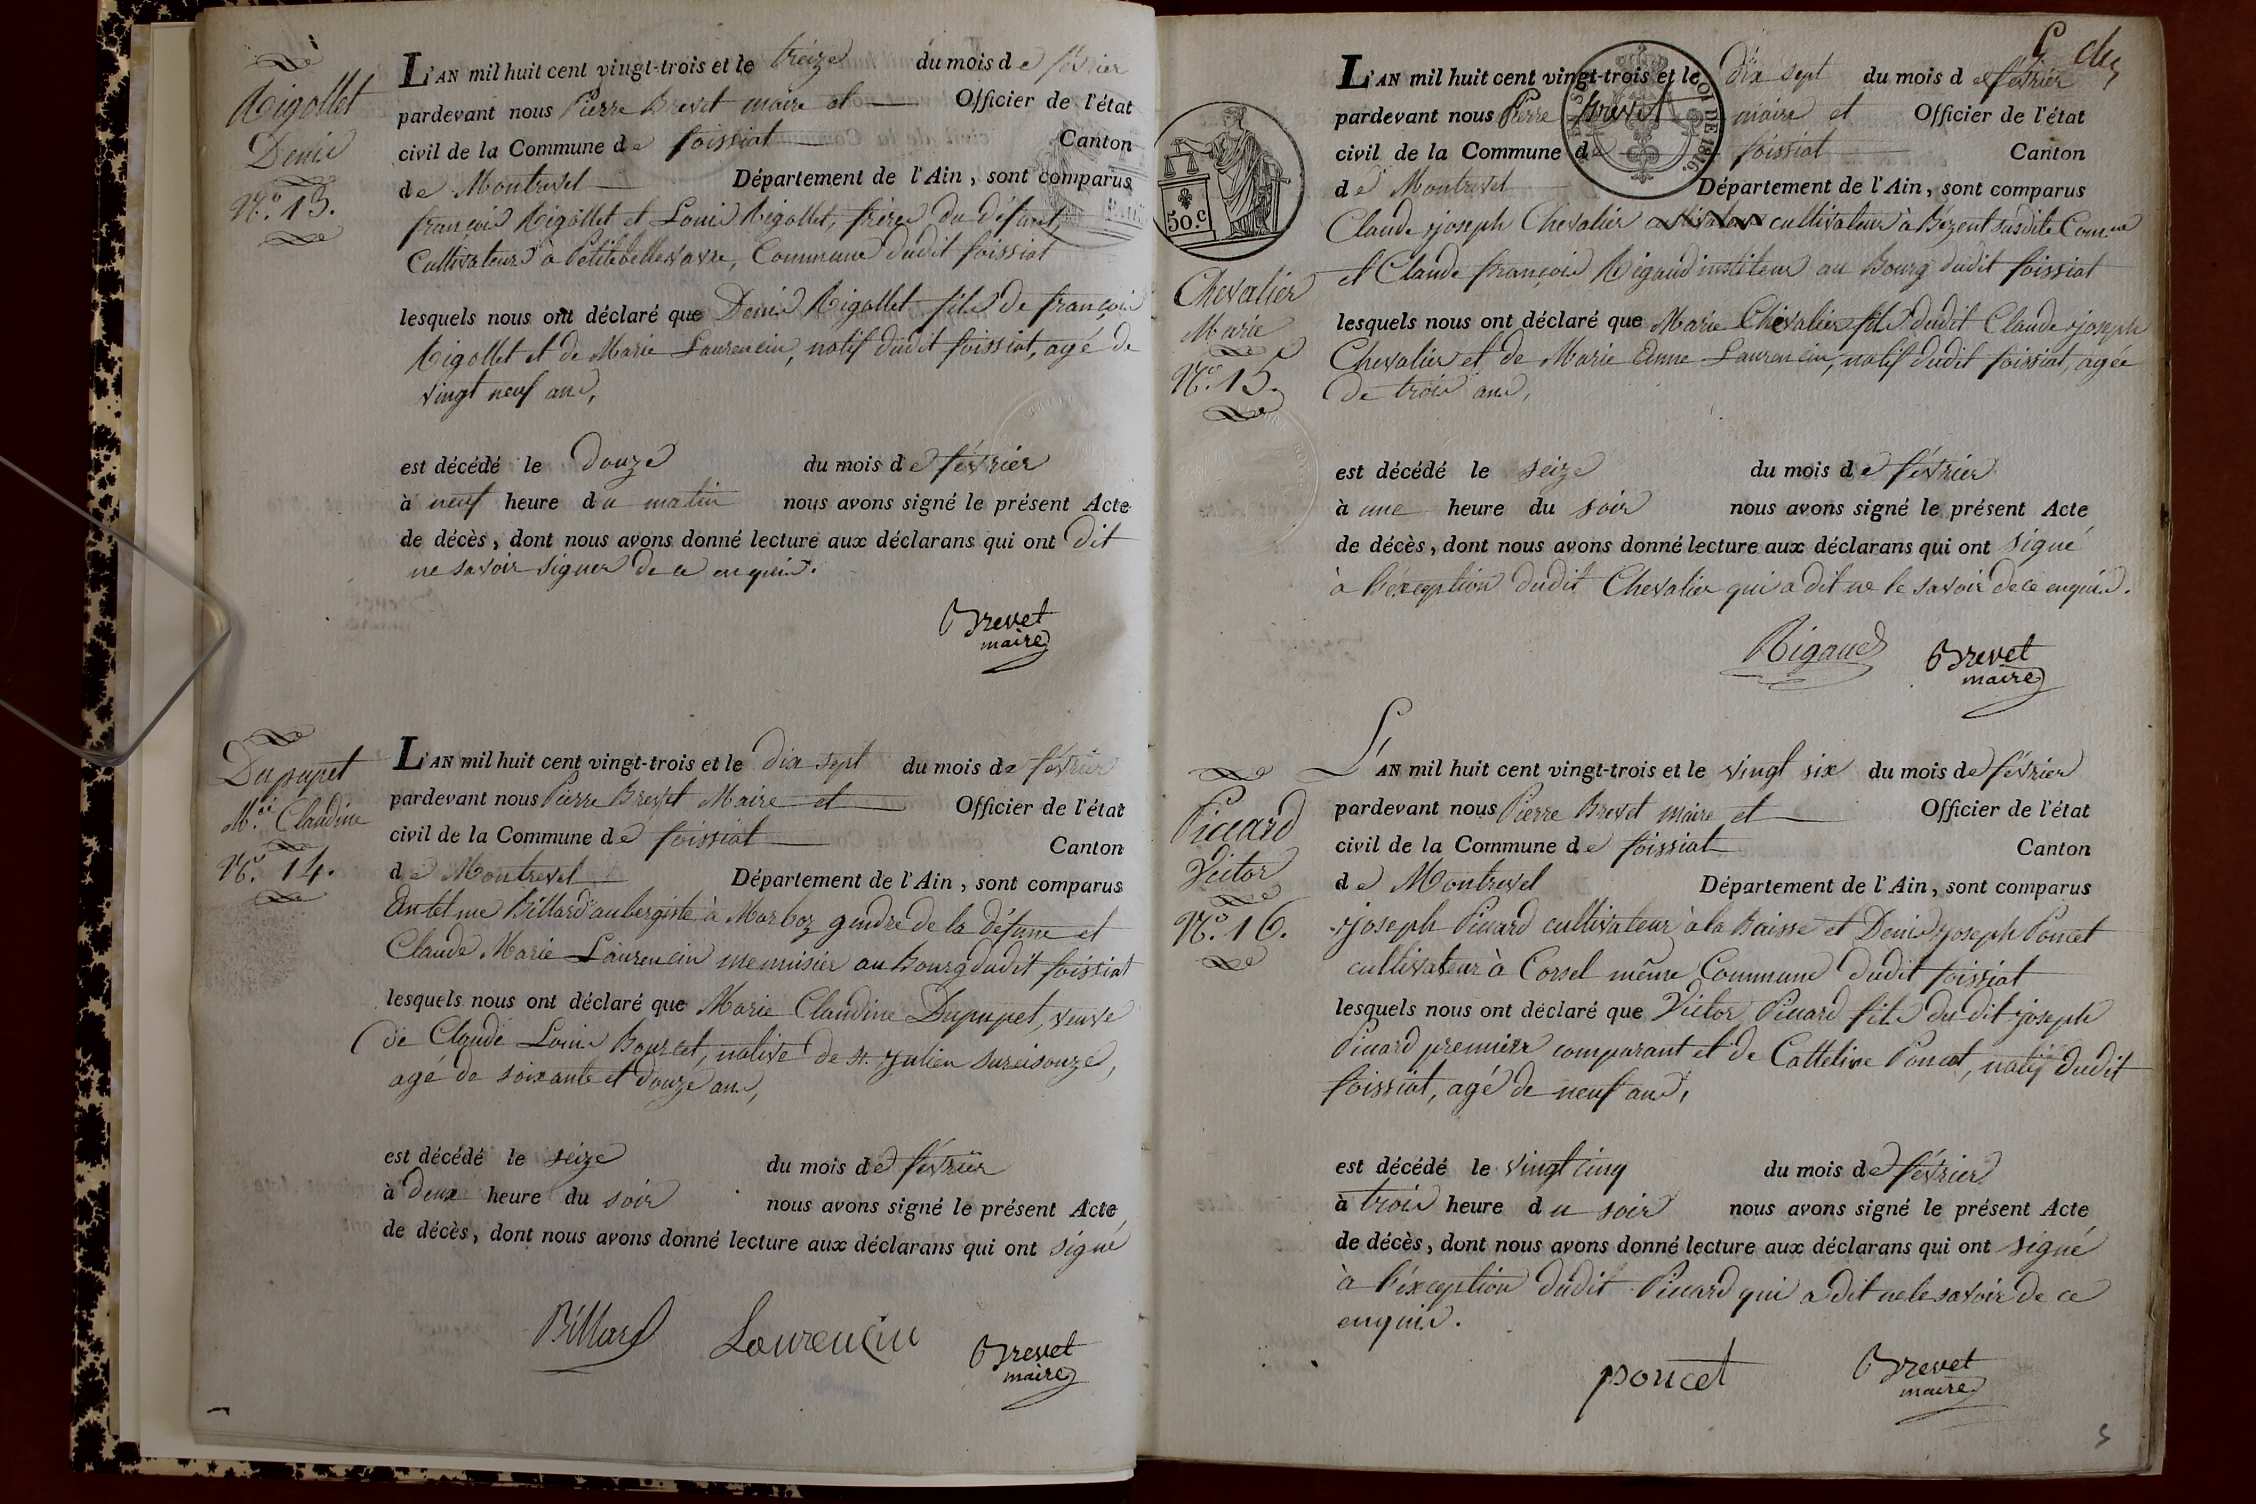 Rigollet
Denis
N.º 13.
L'AN mil huit cent vingt-trois et le treize du mois de février
pardevant nous Pierre Brevet maire et Officier de l'état
civil de la Commune de foissiat Canton
de Montrevel Département de l'Ain, sont comparus
françois Rigollet et Louis Rigollet, frères du défunt,
Cultivateurs à Petitebellevavre, Commune dudit foissiat
lesquels nous ont déclaré que Denis Rigollet fils de françois
Rigollet et de Marie Laurencin, natif dudit foissiat, agé de
vingt neuf ans,
est décédé le douze du mois de février
à neuf heure du matin nous avons signé le présent Acte
de décès, dont nous avons donné lecture aux déclarans qui ont dit
ne savoir signer de ce enquis.
Brevet
maire
Dupupet
M.ie Claudine
N.º 14.
L'AN mil huit cent vingt-trois et le dix sept du mois de février
pardevant nous Pierre Brevet Maire et Officier de l'état
civil de la Commune de foissiat Canton
de Montrevel Département de l'Ain, sont comparus
Antelme Billard aubergiste à Marboz gendre de la défunte et
Claude Marie Laurencin menuisier au Bourg dudit foissiat
lesquels nous ont déclaré que Marie Claudine Dupupet, veuve
de Claude Louis Bourcet, native de St. Julien sureisouze,
agé de soixante et douze ans,
est décédé le seize du mois de février
à deux heure du soir nous avons signé le présent Acte
de décès, dont nous avons donné lecture aux déclarans qui ont signé
Billard Laurencin Brevet
maire
5
LOI DE 1816
50.c
Chevalier
Marie
N.º 15.
L'AN mil huit cent vingt-trois et le dix sept du mois de février
pardevant nous Pierre Brevet maire et Officier de l'état
civil de la Commune de foissiat Canton
de Montrevel Département de l'Ain, sont comparus
Claude joseph Chevalier cultivateur à Bézent susdite Com.ne
et Claude françois Rigaud instituteur au Bourg dudit foissiat
lesquels nous ont déclaré que Marie Chevalier fils dudit Claude joseph
Chevalier et de Marie Anne Laurencin, natif dudit foissiat, agée
de trois ans,
est décédé le seize du mois de février
à une heure du soir nous avons signé le présent Acte
de décès, dont nous avons donné lecture aux déclarans qui ont signé
à l'éxception dudit Chevalier qui a dit ne le savoir de ce enquis.
Rigaud Brevet
maire
Picard
Victor
N.º 16.
L'AN mil huit cent vingt-trois et le vingt six du mois de février
pardevant nous Pierre Brevet maire et Officier de l'état
civil de la Commune de foissiat Canton
de Montrevel Département de l'Ain, sont comparus
joseph Picard cultivateur à la Baisse et Denis joseph Poncet
cultivateur à Corsel même Commune dudit foissiat
lesquels nous ont déclaré que Victor Picard fils du dit joseph
Picard premier comparant et de Catteline Poncet, natif dudit
foissiat, agé de neuf ans,
est décédé le vingt cinq du mois de février
à trois heure du soir nous avons signé le présent Acte
de décès, dont nous avons donné lecture aux déclarans qui ont signé
à l'éxception dudit Picard qui a dit ne le savoir de ce
enquis.
poncet Brevet
maire
5